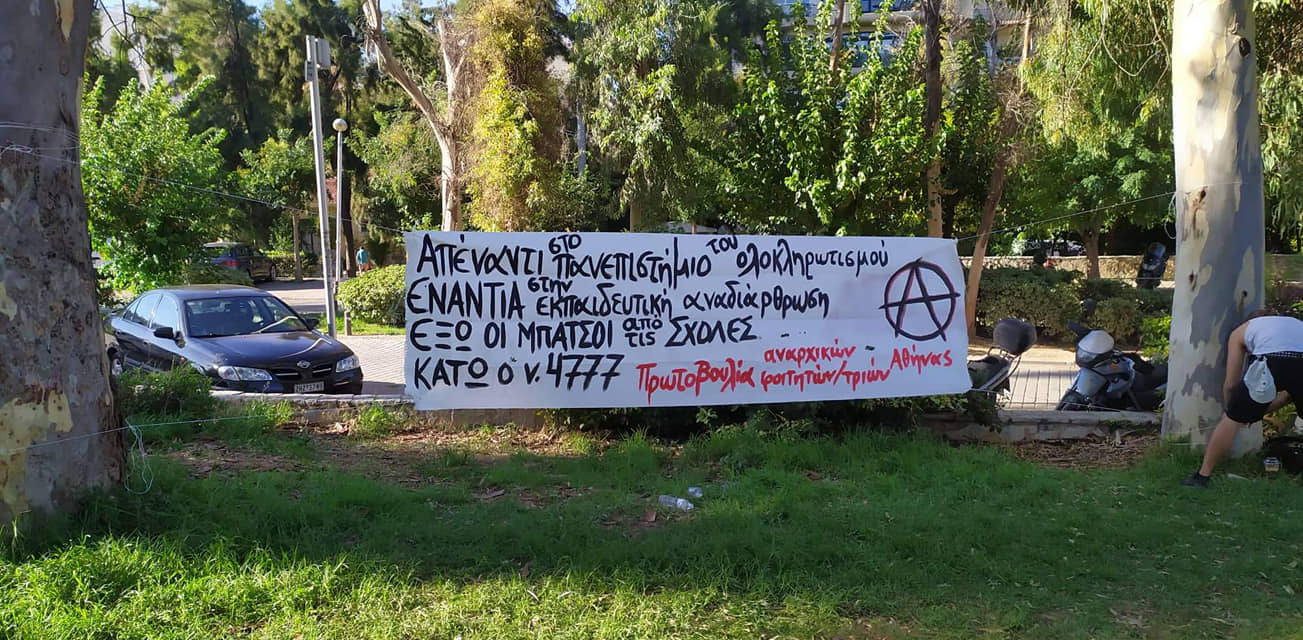 Απέναντι στο πανεπιστήμιο του ολοκληρωτισμού
ΕΝΑΝΤΙΑ στην εκπαιδευτική αναδιάρθρωση
ΕΞΩ ΟΙ ΜΠΑΤΣΟΙ από τις ΣΧΟΛΕΣ...
ΚΑΤΩ ο ν. 4777
Πρωτοβουλία αναρχικών φοιτητών/τριών Αθήνας